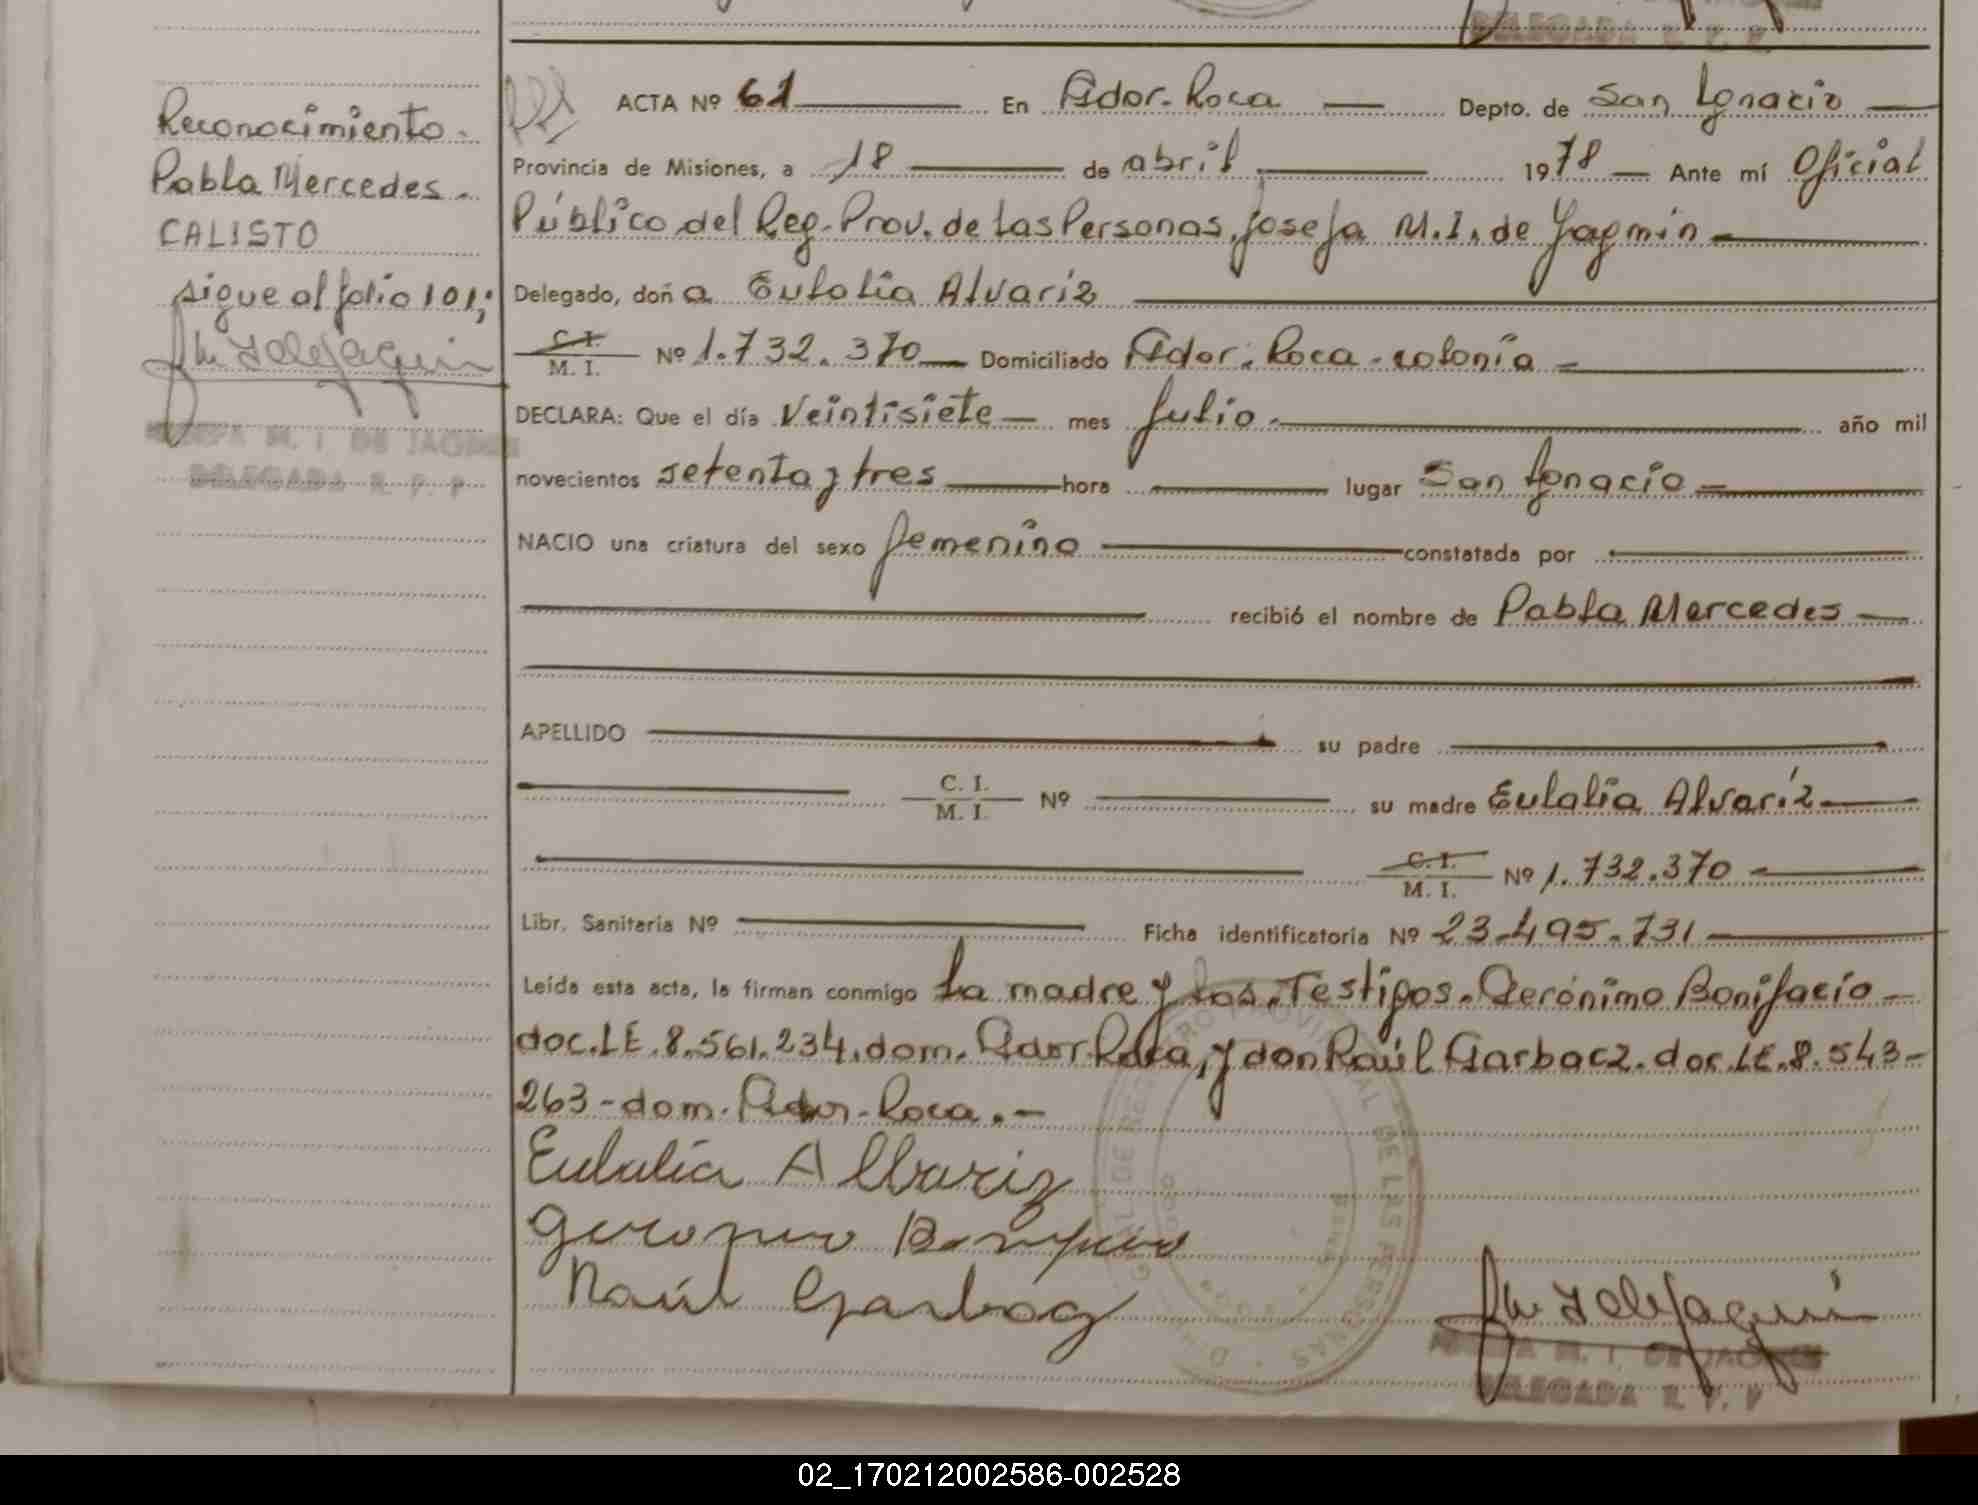 DELEGADA R. P. P
Reconocimiento.
Pabla Mercedes.
CALISTO
sigue al folio 101;
M. I. DE JAQMIN
DELEGADA R. P. P
ACTA Nº 61 En Gdor. Roca Depto. de San Ignacio
Provincia de Misiones, a 18 de abril 1978 Ante mí Oficial
Público del Reg. Prov. de las Personas, Josefa M.I. de Jaqmin
Delegado, doña Eulalia Alvariz
C. I.
M. I. Nº 1.732.370 Domiciliado Gdor. Roca - colonia
DECLARA: Que el día Veintisiete mes Julio año mil
novecientos setenta y tres hora lugar San Ignacio
NACIO una criatura del sexo femenino constatada por
recibió el nombre de Pabla Mercedes
APELLIDO su padre
C. I.
M. I. Nº su madre Eulalia Alvariz
C. I.
M. I. Nº 1.732.370
Libr. Sanitaria Nº Ficha identificatoria Nº 23.495.731
Leída esta acta, la firman conmigo La madre y los Testigos. Gerónimo Bonifacio
doc. LE. 8.561.234. dom. Gdor Roca, y don Raúl Garbacz. doc. LE. 8.543-
263 - dom. Gdor. Roca. -
Eulalia Albariz
Geronimo Bonifacio
Raúl Garbacz
DE LAS PERSONAS
M. I. DE JAQMIN
DELEGADA R. P. P
02_170212002586-002528